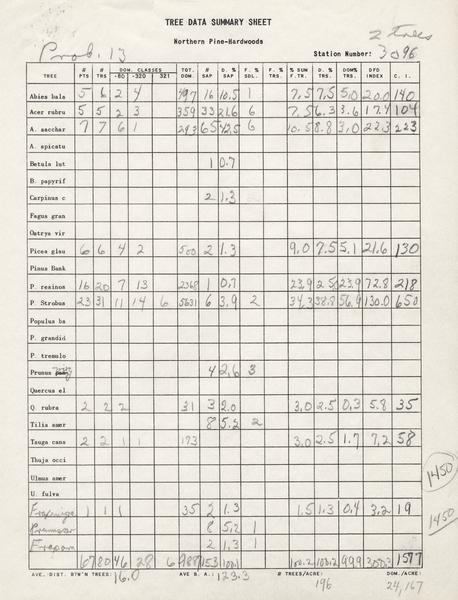 TREE DATA SUMMARY SHEET
2 trees
Northern Pine-Hardwoods
Prob. 13 Station Number: 3096
TREE # PTS # TRS DOM. CLASSES -80 -320 321 TOT. DOM. # SAP D. % SAP F. % SDL. F. % TRS. D. % TRS. % SUM F.TR. D. % TRS. DOM% TRS. DFD INDEX C. I.
Abies bala 5 6 2 4 497 16 10.5 1 7.5 7.5 5.0 20.0 140
Acer rubru 5 5 2 3 359 33 21.6 6 7.5 6.3 3.6 17.4 104
A. sacchar 7 7 6 1 293 65 42.5 6 10.5 8.8 3.0 22.3 223
A. spicatu
Betula lut 1 0.7
B. papyrif
Carpinus c 2 1.3
Fagus gran
Ostrya vir
Picea glau 6 6 4 2 500 2 1.3 9.0 7.5 5.1 21.6 130
Pinus Bank
P. resinos 16 20 7 13 2368 1 0.7 23.9 25 23.9 72.8 218
P. Strobus 23 31 11 14 6 5631 6 3.9 2 34.3 38.8 56.9 130.0 650
Populus ba
P. grandid
P. tremulo
Prunus 4 2.6 3
Quercus el
Q. rubra 2 2 2 31 3 2.0 3.0 2.5 0.3 5.8 35
Tilia amer 8 5.2 2
Tsuga cana 2 2 1 1 173 3.0 2.5 1.7 7.2 58
Thuja occi
Ulmus amer
U. fulva
1450
1 1 1 35 2 1.3 1.5 1.3 0.4 3.2 19
8 5.2 1
1450
2 1.3 1
67 80 46 28 6 153 100.1 100.2 100.2 99.9 300.3 1577
AVE. DIST. BTW'N TREES: 16.0 AVE B. A.: 123.3 # TREES/ACRE: 196 DOM./ACRE: 24,167